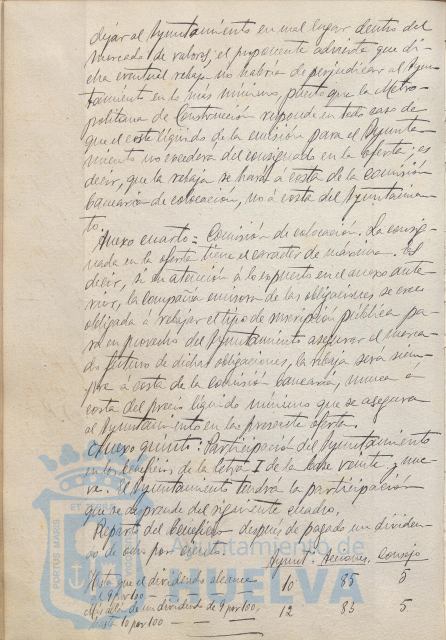 dejar al Ayuntamiento en mal lugar dentro del
mercado de valores; el proponente advierte que di-
cha eventual rebaja no habría de perjudicar al Ayun-
tamiento en lo más mínimo, puesto que la Metro-
politana de Construcción responde en todo caso de
que el coste líquido de la emisión para el Ayunta-
miento no excederá del consignado en la oferta; es
decir, que la rebaja se hará á costa de la comisión
bancaria de colocación, no á costa del Ayuntamien-
to.
Anexo cuarto = Comisión de colocación. La consig-
nada en la oferta tiene el caracter de máxima. Es
decir, si en atención á lo expuesto en el anexo ante-
rior, la compañia emisora de las obligaciones se cree
obligada á rebajar el tipo de suscripción pública pa-
ra en provecho del Ayuntamiento asegurar el merca-
do futuro de dichas obligaciones, la rebaja será siem-
pre á costa de la comisión bancaria, nunca á
costa del precio líquido mínimo que se asegura
al Ayuntamiento en la presente oferta.
Anexo quinto: Participación del Ayuntamiento
en los beneficios de la letra I de la base veinte y nue-
ve. El Ayuntamiento tendrá la participación
que se deprende del siguiente cuadro.
Reparto del beneficio después de pagado un dividen-
do de por ciento
Ayunt. Acciones. Consejo
Hasta que el dividendo alcance
el 9 por 100 — 10 85 5
Más allá de un dividendo de 9 por 100,
hasta 10 por 100 — 12 83 5
PORTUS MARIS ET
Ayuntamiento de
HUELVA